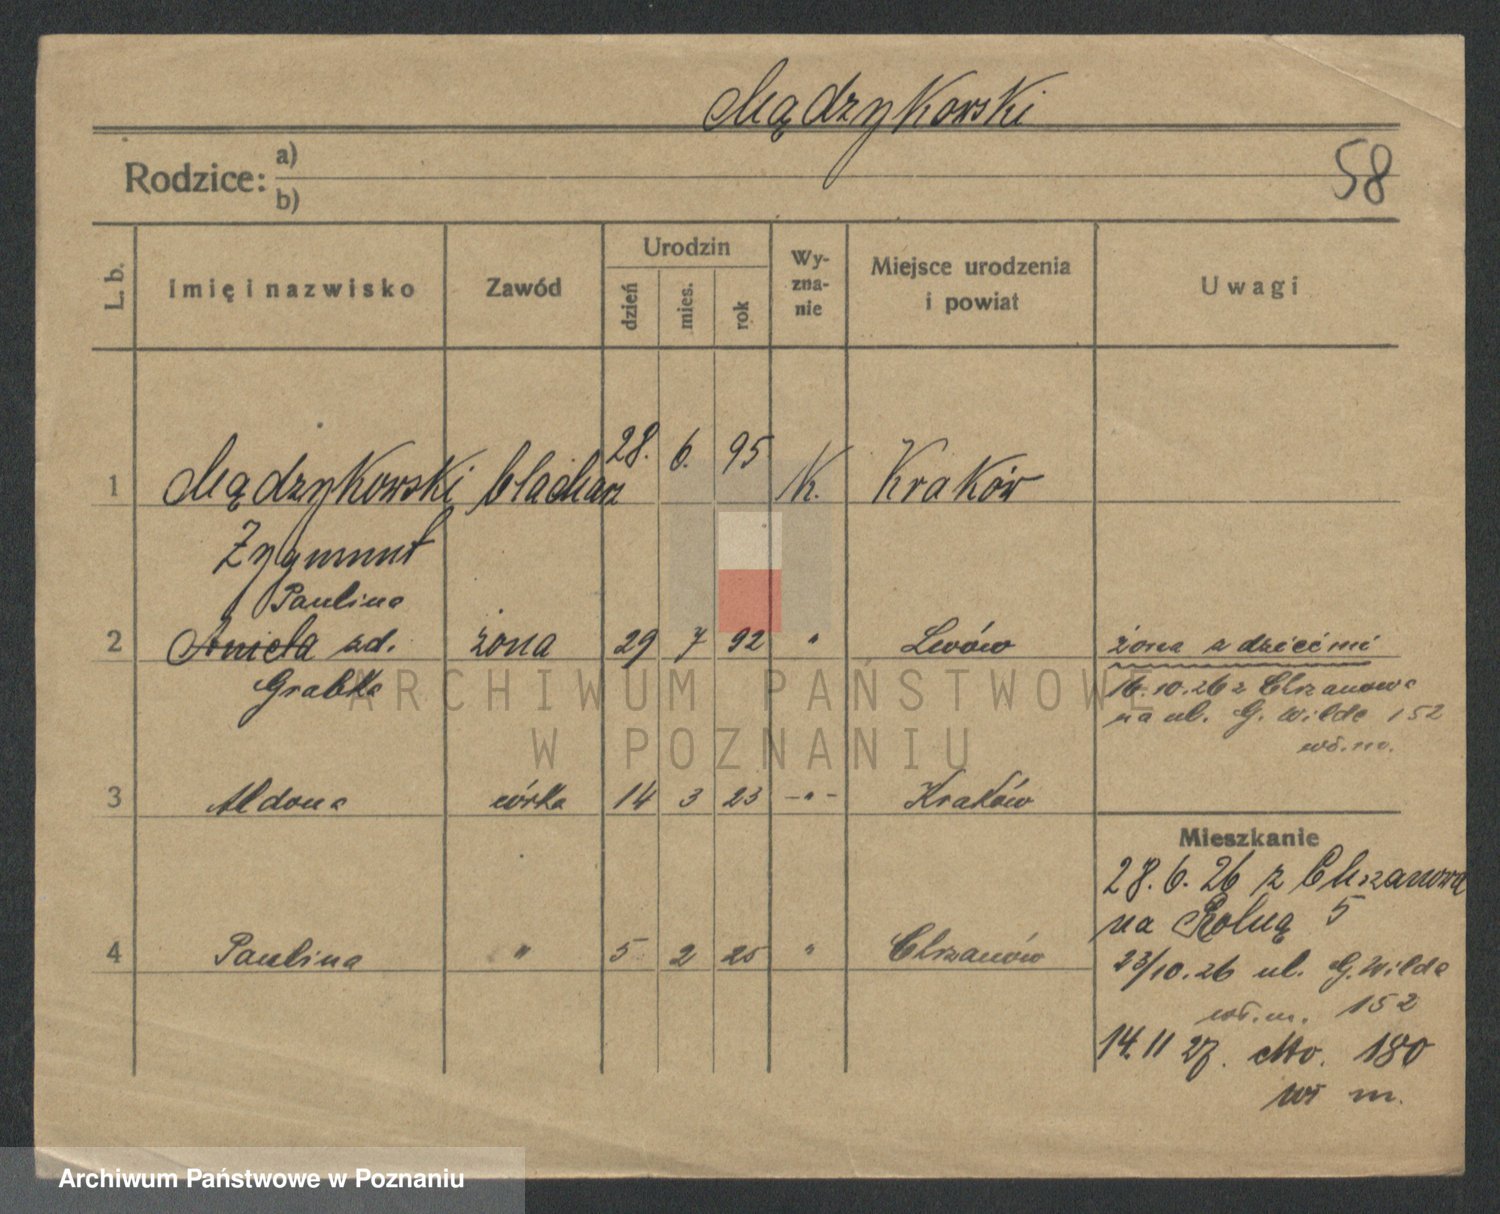 Mądzykowski
Rodzice: a)
b)
58
L. b.
Imię i nazwisko
Zawód
Urodzin
dzień
mies.
rok
Wy-
zna-
nie
Miejsce urodzenia
i powiat
Uwagi
1 Mądzykowski blacharz 28. 6. 95 K. Kraków
Zygmunt
Paulina
2 Aniela zd. żona 29 7 92 " Lwów żona z dziećmi
Grabka
16.10.26 z Chrzanowa
na ul. G. Wilda 152
wł. m.
3 Aldona córka 14 3 23 -"- Kraków
Mieszkanie
28.6.26 z Chrzanowa
na Rolną 5
4 Paulina " 5 2 25 " Chrzanów
23/10.26 ul. G. Wilda
wł. m. 152
14.11 27. 180
wł m.
ARCHIWUM PAŃSTWOWE
W POZNANIU
Archiwum Państwowe w Poznaniu